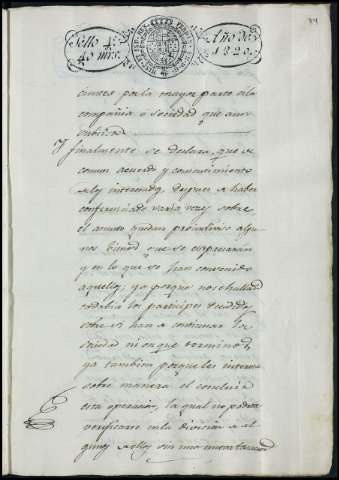 Sello 4º
40 mrs.
Año de
1820.
cientes por la mayor parte á la
compañia ó sociedad que an
Y finalmente se declara, que de
comun acuerdo y consentimiento
de los interesados, despues de haber
conferenciado varias veces sobre
el asunto quedan proindiviso algu
nos bienes que se expresarán
y en lo que se han convenido
aquellos; ya porque no se hallan
todavia los participes decididos
sobre si han de continuar la
sociedad ni en que terminos,
ya tambien porque les interesa
sobre manera el concluir
esta operacion, la qual no podria
verificarse en la division de al
gunos de ellos sin una nueva tasacion